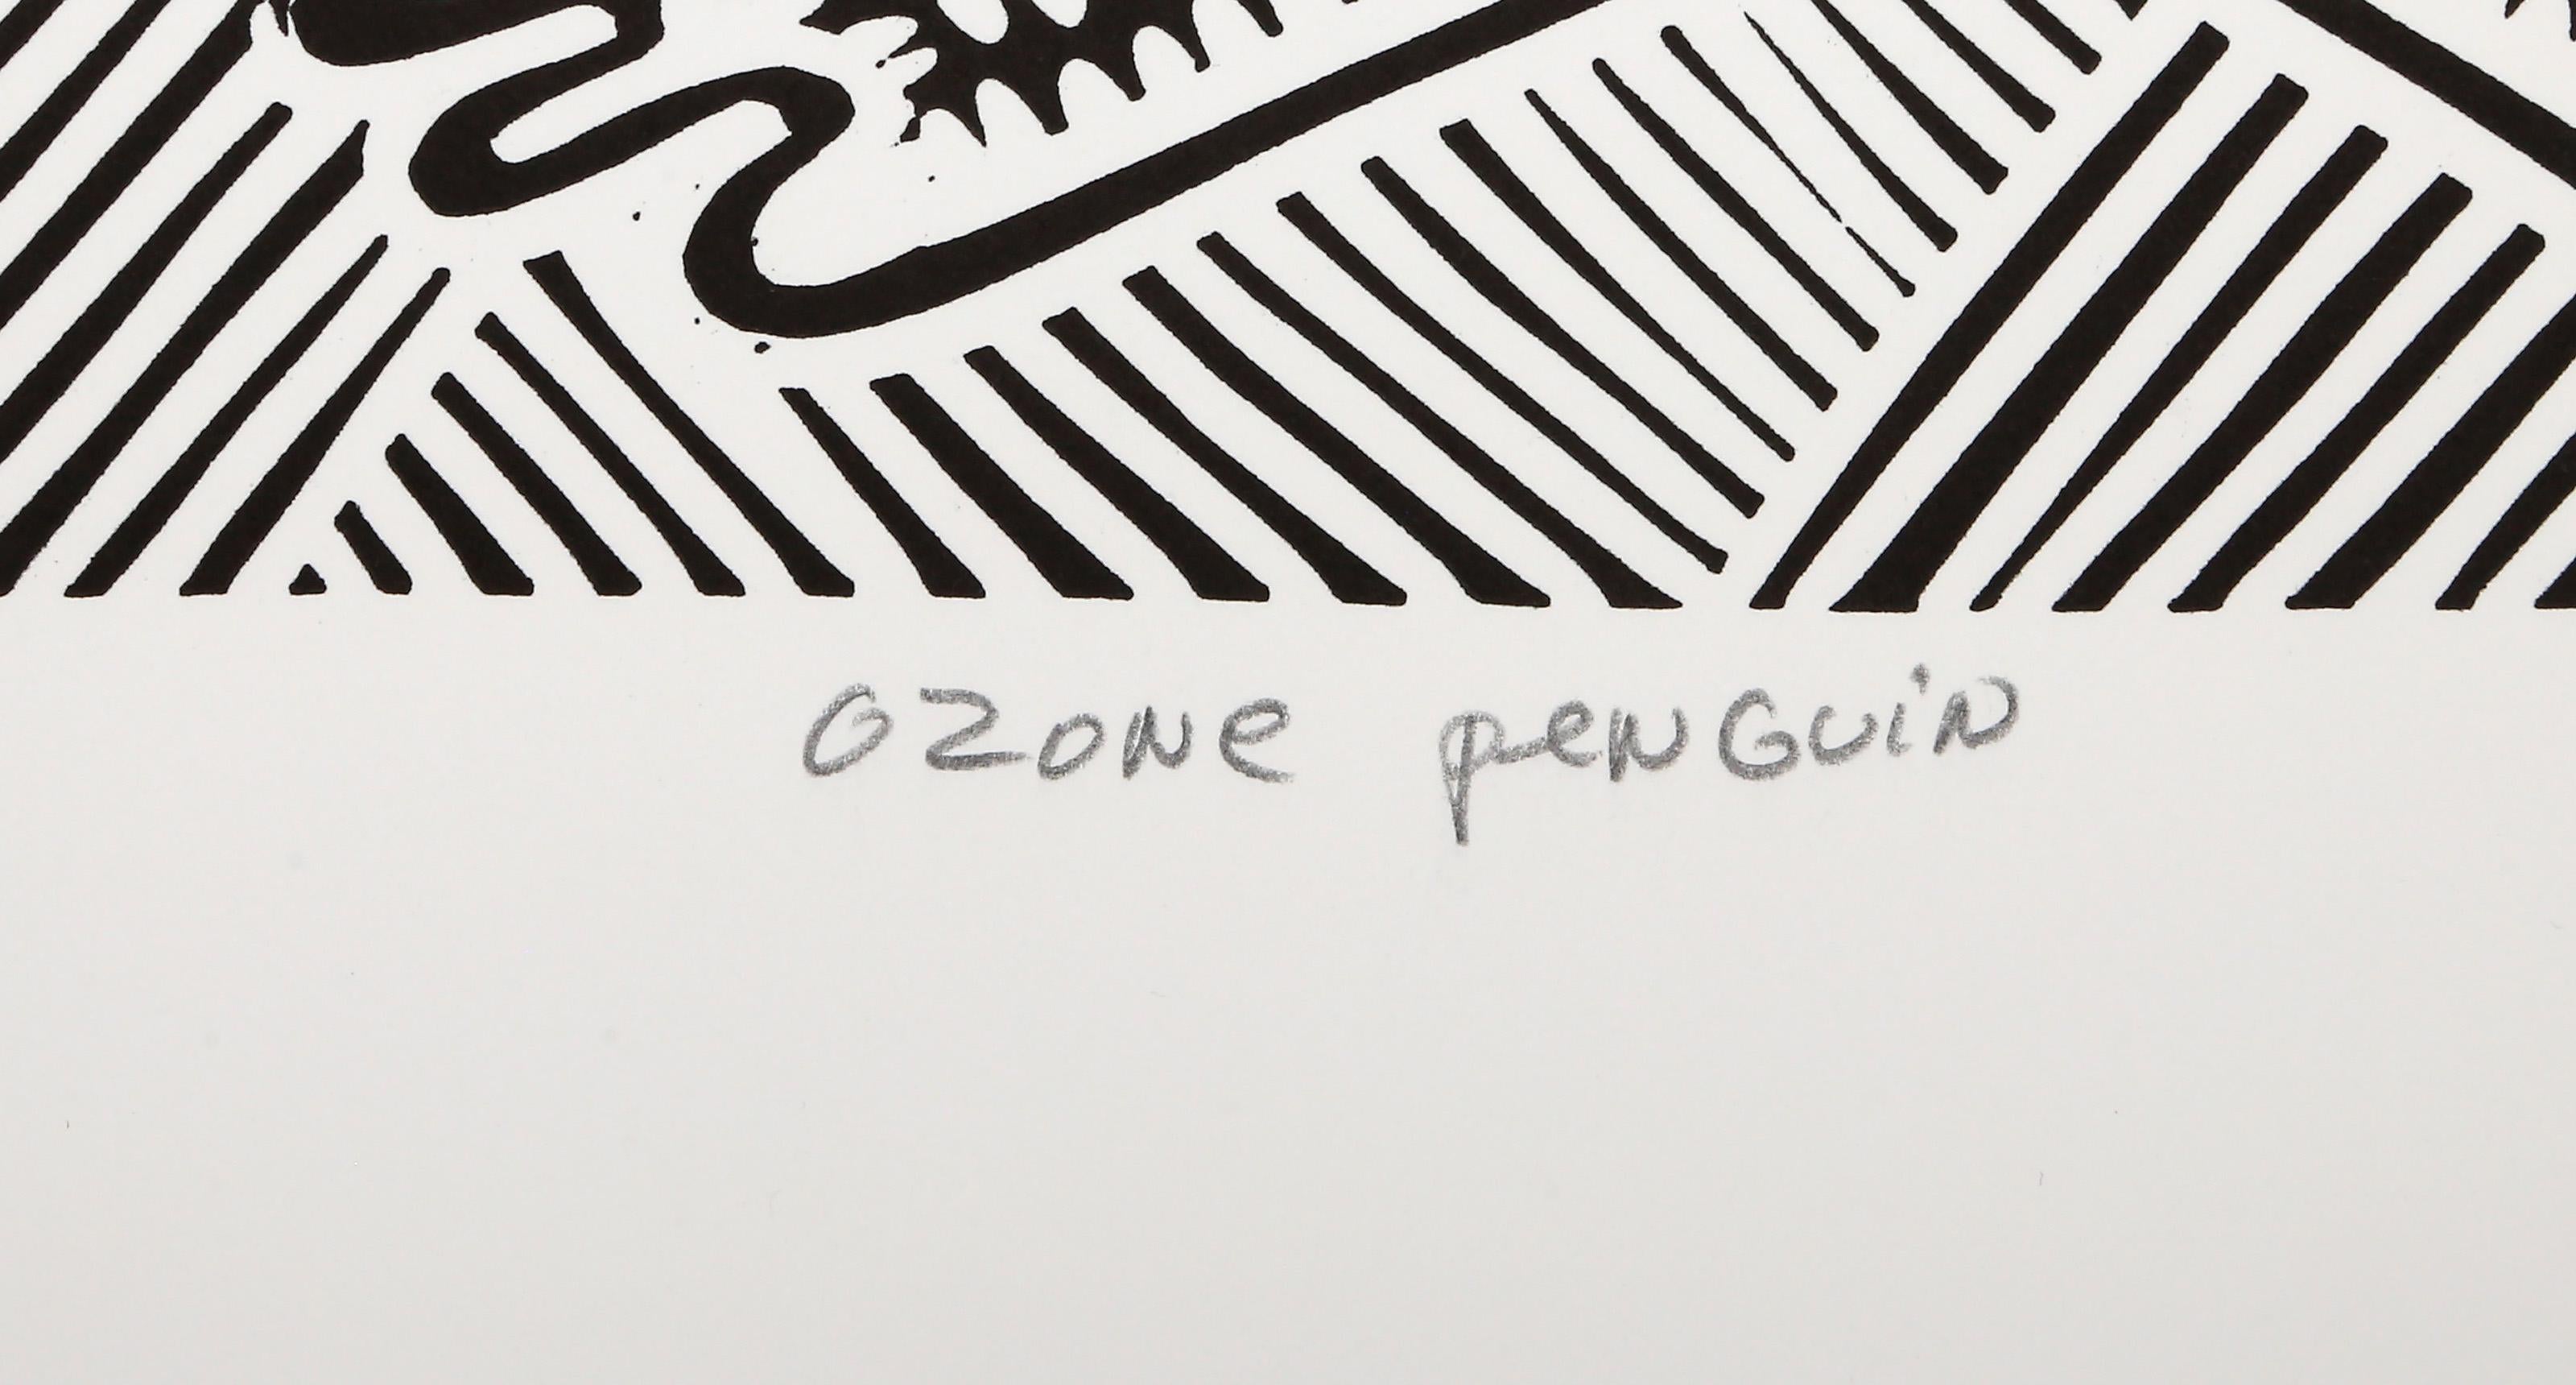 OZONe penGuiN